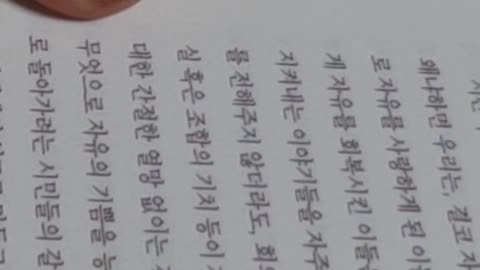 왜냐하면 우리는, 결코 자
로 자유를 사랑하게 된 이
게 자유를 회복시킨 이들
지켜내는 이야기들을 자주
를 전해주지 않더라도, 회
실 혹은 조합의 가치 등이
대한 간절한 열망 없이는
무엇으로 자유의 기쁨을
로 돌아가려는 시민들의 갈